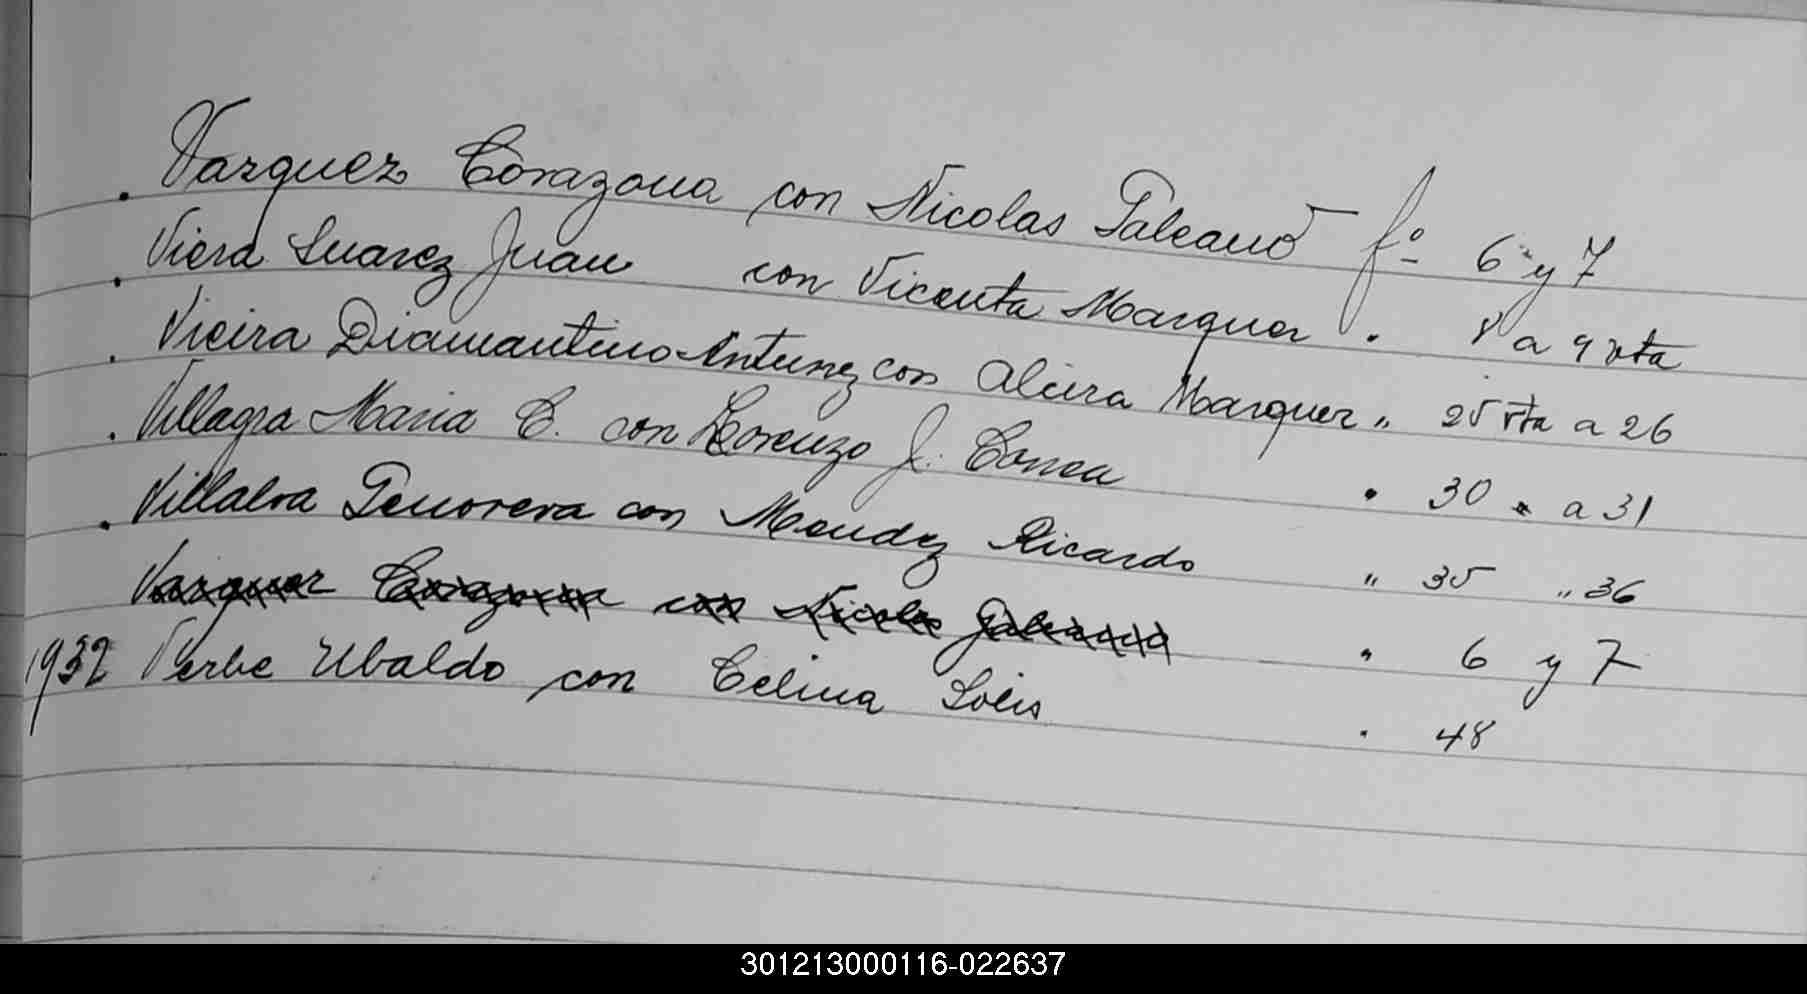 . Vazquez Corazona con Nicolas Galeano fº 6 y 7
. Viera Suarez Juan con Vicenta Marquez . 8 a 9 vta
. Vieira Diamantino Antunez con Alcira Marquez " 25 vta a 26
. Villagra Maria C. con Lorenzo J. Correa . 30 a 31
. Villalva Genoveva con Mendez Ricardo " 35 " 36
Vazquez Corazona con Nicolas Galeano " 6 y 7
1932 Verbe Ubaldo con Celina Solis . 48
301213000116-022637